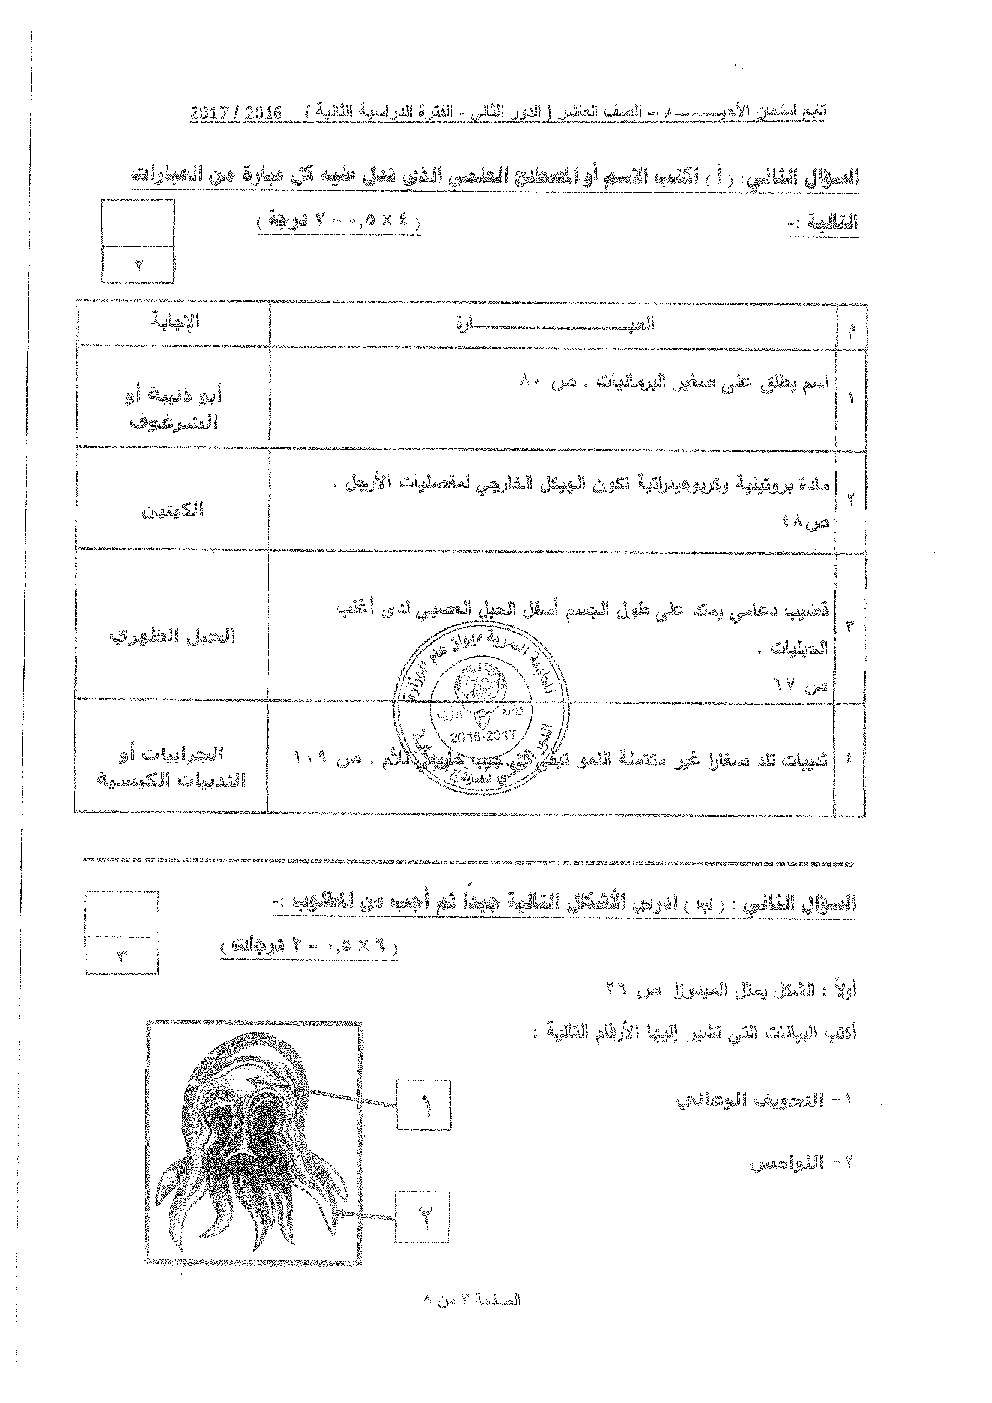 تابع امتحان الأحيـــــــاء – الصف العاشر ( الدور الثاني - الفترة الدراسية الثانية ) 2016 / 2017
السؤال الثاني: ( أ ) اكتب الاسم أو المصطلح العلمي الذي تدل عليه كل عبارة من العبارات
التالية :-
( ٤ × ٠,٥ = ٢ درجة )
٢
م
العبـــــــــــــــــــــارة
الإجابة
١
اسم يطلق على صغير البرمائيات . ص ٨٠
أبو ذنيبة أو
الشرغوف
٢
مادة بروتينية وكربوهيدراتية تكون الهيكل الخارجي لمفصليات الأرجل .
ص ٤٨
الكيتين
٣
قضيب دعامي يمتد على طول الجسم أسفل الحبل العصبي لدى أغلب
الحبليات .
ص ٦٧
الحبل الظهري
٤
ثدييات تلد صغارا غير مكتملة النمو تبقى في جيب خارجي دائم . ص ١٠٩
الجرابيات أو
الثدييات الكيسية
2016-2017
السؤال الثاني : ( ب ) ادرس الأشكال التالية جيداً ثم أجب عن المطلوب :-
( ٦ × ٠,٥ = ٣ درجات )
٣
أولاً : الشكل يمثل الميدوزا ص ٢٦
أكتب البيانات التي تشير إليها الأرقام التالية :
١- التجويف الوعائي
٢- اللوامس
١
٢
الصفحة ٣ من ٨